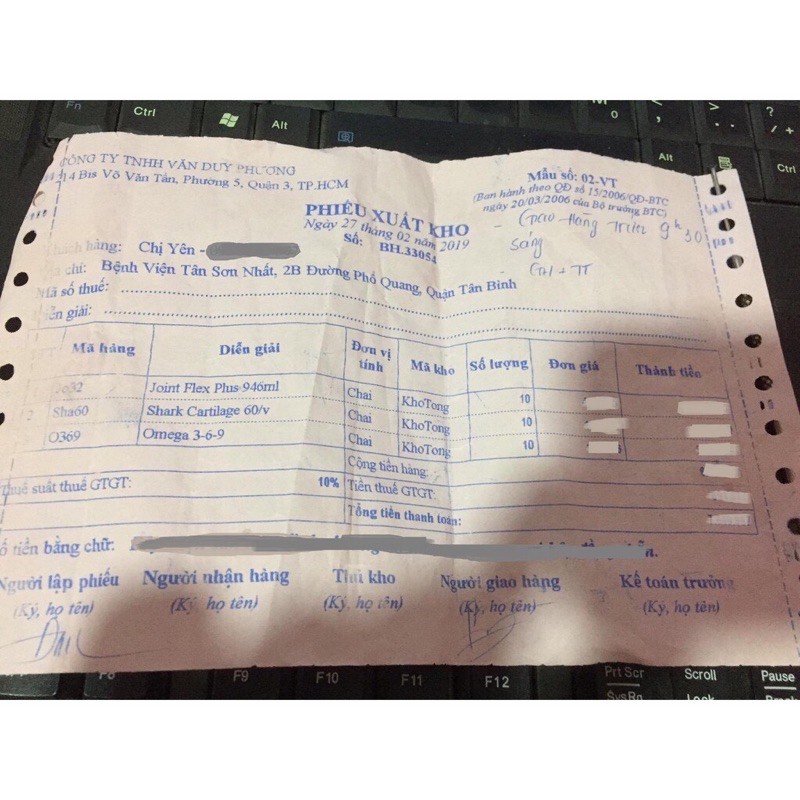 CÔNG TY TNHH VĂN DUY PHƯƠNG
Bis Võ Văn Tần, Phường 5, Quận 3, TP.HCM
Mẫu số: 02-VT
(Ban hành theo QĐ số 15/2006/QĐ-BTC
ngày 20/03/2006 của Bộ trưởng BTC)
PHIẾU XUẤT KHO
Ngày 27 tháng 02 năm 2019
Số: BH.33054
- Giao Hàng Trước 9h30
sáng
hàng: Chị Yên -
chỉ: Bệnh Viện Tân Sơn Nhất, 2B Đường Phổ Quang, Quận Tân Bình
Mã số thuế:
giải:
Mã hàng Diễn giải Đơn vị tính Mã kho Số lượng Đơn giá Thành tiền
Joint Flex Plus 946ml Chai KhoTong 10
Sha60 Shark Cartilage 60/v Chai KhoTong 10
O369 Omega 3-6-9 Chai KhoTong 10
Cộng tiền hàng:
Thuế suất thuế GTGT: 10% Tiền thuế GTGT:
Tổng tiền thanh toán:
tiền bằng chữ:
Người lập phiếu Người nhận hàng Thủ kho Người giao hàng Kế toán trưởng
(Ký, họ tên) (Ký, họ tên) (Ký, họ tên) (Ký, họ tên) (Ký, họ tên)
Fn Ctrl Alt
Alt Ctrl
F9 F10 F11 F12 Prt Scr Scroll Pause
SysRq